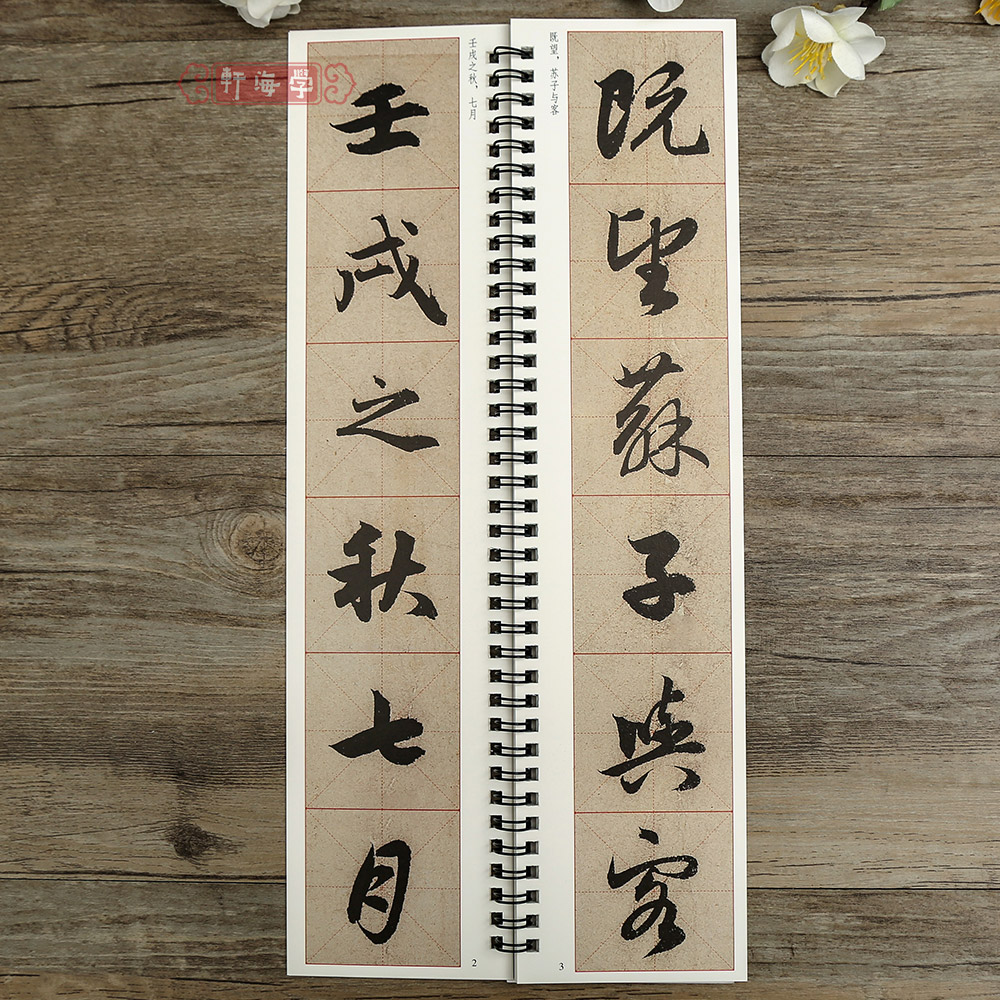 軒海学
壬戌之秋七月
壬戌之秋，七月
2
既望，苏子与客
既望蘇子與客
3